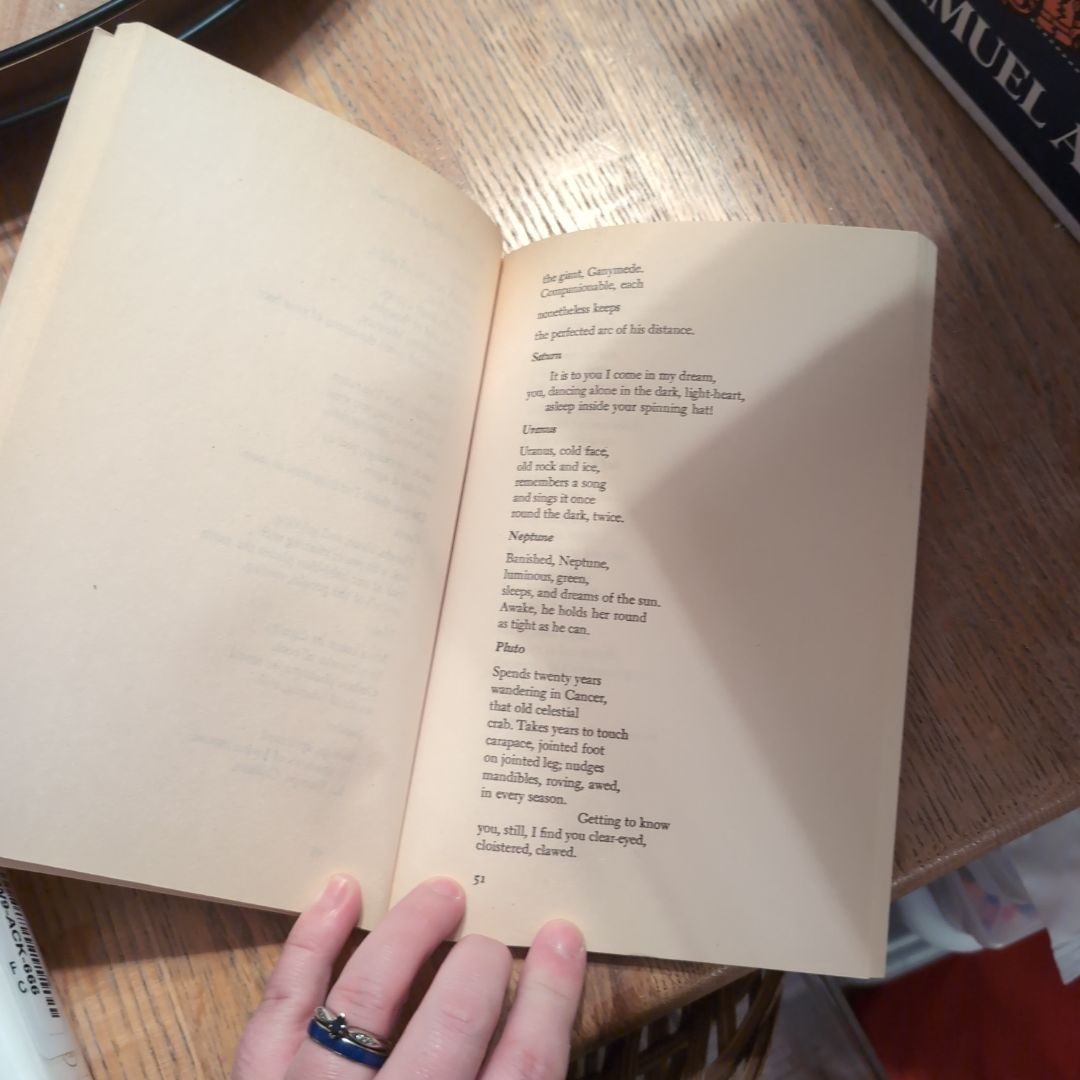 the giant, Ganymede.
Companionable, each
nonetheless keeps
the perfected arc of his distance.
Saturn
It is to you I come in my dream,
you, dancing alone in the dark, light-heart,
asleep inside your spinning hat!
Uranus
Uranus, cold face,
old rock and ice,
remembers a song
and sings it once
round the dark, twice.
Neptune
Banished, Neptune,
luminous, green,
sleeps, and dreams of the sun.
Awake, he holds her round
as tight as he can.
Pluto
Spends twenty years
wandering in Cancer,
that old celestial
crab. Takes years to touch
carapace, jointed foot
on jointed leg; nudges
mandibles, roving, awed,
in every season.
Getting to know
you, still, I find you clear-eyed,
cloistered, clawed.
51
MUEL A
-ACK-666
F